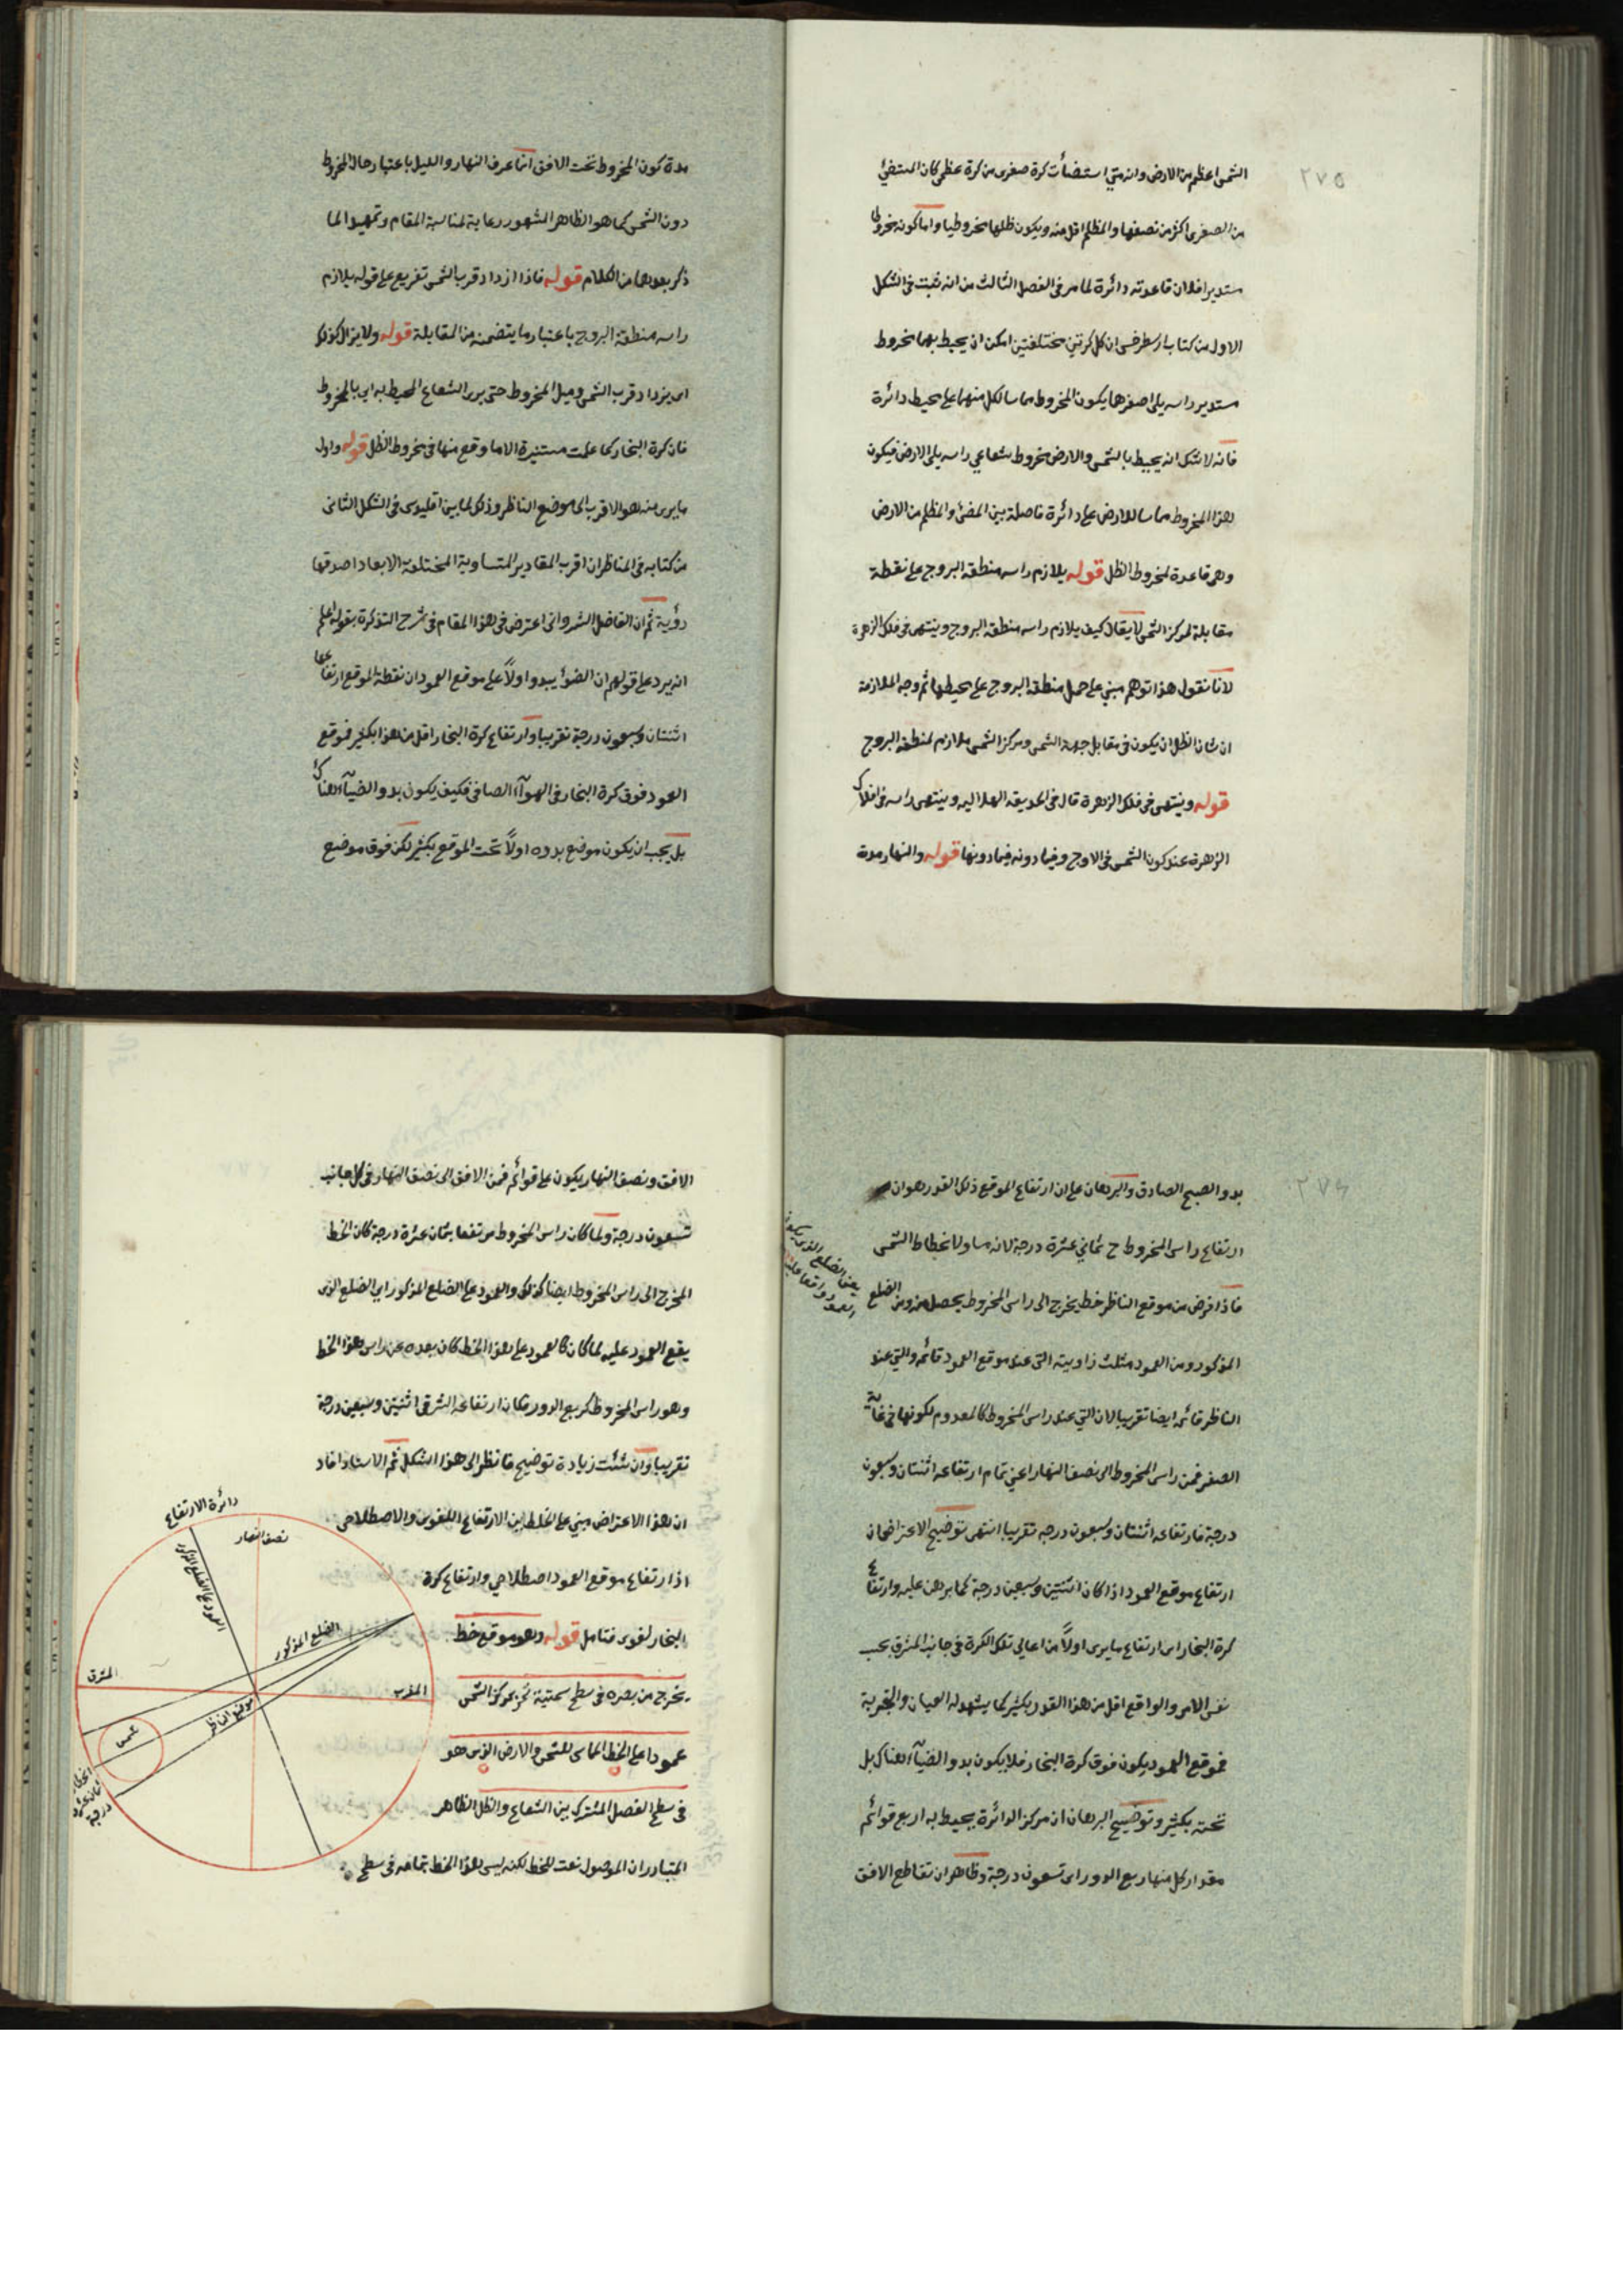 ٢٧٥
الشمس اعظم من الارض وانه متى استضأت كرة صغرى من كرة عظمى كان المستضئ
من الصغرى اكثر من نصفها والمظلم اقل منه ويكون ظلها مخروطيا واما كونه مخروطا
مستديرا فلان قاعدته دائرة لما مر فى الفصل الثالث من انه ثبت فى الشكل
الاول من كتاب ارسطرخس ان كل كرتين مختلفتين امكن ان يحيط بهما مخروط
مستدير راسه يلى اصغرهما يكون المخروط مماسا لكل منهما على محيط دائرة
فانه لا شك انه يحيط بالشمس والارض مخروط شعاعي راسه يلى الارض فيكون
هذا المخروط مماسا للارض على دائرة فاصلة بين المضئ والمظلم من الارض
وهى قاعدة لمخروط الظل قوله يلازم راسه منطقة البروج على نقطة
مقابلة لمركز الشمس لا يقال كيف يلازم راسه منطقة البروج وينتهى فى فلك الزهرة
لانا نقول هذا توهم مبني على حمل منطقة البروج على محيطها ثم وجه الملازمة
ان شان الظل ان يكون فى مقابل جهة الشمس ومركز الشمس ملازم لمنطقة البروج
قوله وينتهى فى فلك الزهرة قال فى الحديقة الهلالية وينتهى راسه فى افلاك
الزهرة عند كون الشمس فى الاوج وفيما دونه فيما دونها قوله والنهار مدة
مدة كون المخروط تحت الافق انما عرف النهار والليل باعتبار حال المخروط
دون الشمس كما هو الظاهر المشهور رعاية لمناسبة المقام وتمهيدا لما
ذكر بعدهما من الكلام قوله فاذا ازداد قرب الشمس تفريع على قوله يلازم
راسه منطقة البروج باعتبار ما يتضمنه من المقابلة قوله ولا يزال كذلك
اى يزداد قرب الشمس وميل المخروط حتى يرى الشعاع المحيط به اى بالمخروط
فان كرة البخار كما علمت مستنيرة الا ما وقع منها فى مخروط الظل قوله واول
ما يرى منه هو الاقرب الى موضع الناظر وذلك لما بين اقليدس فى الشكل الثانى
من كتابه فى المناظر ان اقرب المقادير المتساوية المختلفة الابعاد اصدقها
رؤية ثم ان الفاضل الشروانى اعترض فى هذا المقام فى شرح التذكرة بقوله اعلم
انه يرد على قولهم ان الضوء يبدو اولاً على موقع العمود ان نقطة الموقع ارتفاعها
اثنتان وسبعون درجة تقريبا وارتفاع كرة البخار اقل من هذا بكثير فموقع
العمود فوق كرة البخار فى الهوآء الصافى فكيف يكون بدو الضيآء هناك
بل يجب ان يكون موضع بدوه اولاً تحت الموقع بكثير لكن فوق موضع
٢٧٦
بدو الصبح الصادق والبرهان على ان ارتفاع الموقع ذلك القدر هو ان
ارتفاع راس المخروط ح ثمانى عشرة درجة لانه مساو لانحطاط الشمس
فاذا فرض من موقع الناظر خط يخرج الى راس المخروط يحصل منه ومن الضلع
يعنى الضلع الذى يكون العمود واقعا عليه
المذكور ومن العمود مثلث زاويته التى عند موقع العمود قائمة والتي عند
الناظر قائمة ايضا تقريبا لان التي عند راس المخروط كالمعدوم لكونها فى غاية
الصغر فمن راس المخروط الى نصف النهار اعني تمام ارتفاعه اثنتان وسبعون
درجة فارتفاعه اثنتان وسبعون درجه تقريبا انتهى توضيح الاعتراض ان
ارتفاع موقع العمود اذا كان اثنتين وسبعين درجة كما برهن عليه وارتفاع
كرة البخار اى ارتفاع ما يرى اولاً من اعالى تلك الكرة فى جانب المشرق بحسب
نفس الامر والواقع اقل من هذا القدر بكثير كما يشهد له العيان والتجربة
فموقع العمود يكون فوق كرة البخار فلا يكون بدو الضيآء هناك بل
تحته بكثير وتوضيح البرهان ان مركز الدائرة يحيط به اربع قوائم
مقدار كل منها ربع الدور اى تسعون درجة وظاهر ان تقاطع الافق
الافق ونصف النهار يكون على قوائم فمن الافق الى نصف النهار فى كل جانب
تسعون درجة ولما كان راس المخروط مرتفعا بثمان عشرة درجة كان الخط
المخرج الى راس المخروط ايضا كذلك والعمود على الضلع المذكور اى الضلع الذى
يقع العمود عليه لما كان كالعمود على هذا الخط كان بعده عن راس هذا الخط
وهو راس المخروط كربع الدور فكان ارتفاعه الشرقى اثنتين وسبعين درجة
تقريبا وان شئت زيادة توضيح فانظر الى هذا الشكل ثم الاستاذ افاد
ان هذا الاعتراض مبني على الخلط بين الارتفاع اللغوى والاصطلاحى
اذ ارتفاع موقع العمود اصطلاحي وارتفاع كرة
البخار لغوى فتامل قوله وهو موقع خط
يخرج من بصره فى سطح سمتية تمر بمركز الشمس
عمودا على الخط المماس للشمس والارض الذى هو
فى سطح الفصل المشترك بين الشعاع والظل الظاهر
المتبادر ان الموصول نعت للخط لكنه ليس هذا الخط بتمامه فى سطح
دائرة الارتفاع
نصف النهار
العمود على الضلع المذكور
الضلع المذكور
المشرق
المغرب
موضع الناظر
شمس
انحطاط ثمان عشرة درجة